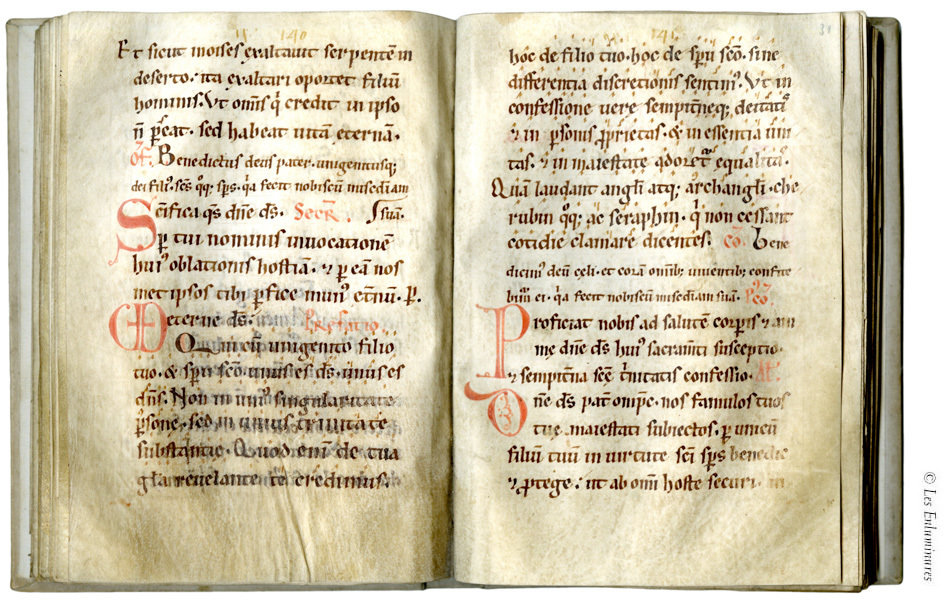 140
Et sicut moises exaltauit serpentem in
deserto. ita exaltari oportet filiū
hominis. Vt omīs q̇ credit in ipso
n̄ p̄eat. sed habeat uitā eternā.
Of. Benedictus deus pater. unigenitusq;
dei filī. scs̄ qq; sp̄s. q̇a fecit nobiscū misedīam
Sc̄ifica qs̄ dn̄e ds̄. Secr̄. suā.
ꝑ tui nominis inuocationē
huiꝰ oblationis hostiā. ⁊ ꝑ eā nos
met ipsos tibi ꝑfice munꝰ et̄nū. P.
eterne ds̄. Prefatio
Qui cū unigenito filio
tuo. & sp̄u sc̄o. unus es ds̄. unus es
dn̄s. Non in uniꝰ singularitate
ꝑsone. sed in unius trinitate
substantie. Quod enī de tua
gl̄a reuelante te credimus.
141
31
hoc de filio tuo. hoc de sp̄u sc̄o. sine
differentia discretionis sentimꝰ. Vt in
confessione uere sempit̄neq; deitatis
& in ꝑsonis ꝓprietas. & in essentia uni
tas. ⁊ in maiestate adoret̄ equalitas.
Quā laudant angl̄i atq; archangl̄i. che
rubin qq; ac seraphin. q̇ non cessant
cotidie clamare dicentes. Co. Bene
dicimꝰ deū celi. et corā omīb; uiuentib; confite
bim̄ ei. q̇a fecit nobiscū misedīam suā. Pco
Proficiat nobis ad salutē corꝑis ⁊ ani
me dn̄e ds̄ huiꝰ sacram̄ti susceptio.
⁊ sempit̄na sc̄e t̄nitatis confessio. Al'.
Dn̄e ds̄ pat̄ omp̄e. nos famulos tuos
tue maiestati subiectos. ꝑ unicū
filiū tuū in uirtute sc̄i sp̄s benedic
⁊ ꝓtege. ut ab omī hoste securi. in
© Les Enluminures